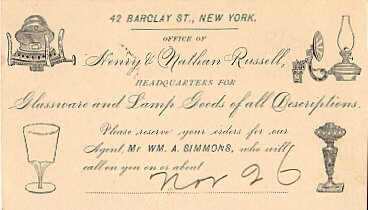 42 BARCLAY ST., NEW YORK.
OFFICE OF
Henry & Nathan Russell,
HEADQUARTERS FOR
Glassware and Lamp Goods of all Descriptions.
Please reserve your orders for our
Agent, Mr WM. A. SIMMONS, who will
call on you on or about
Nov 26